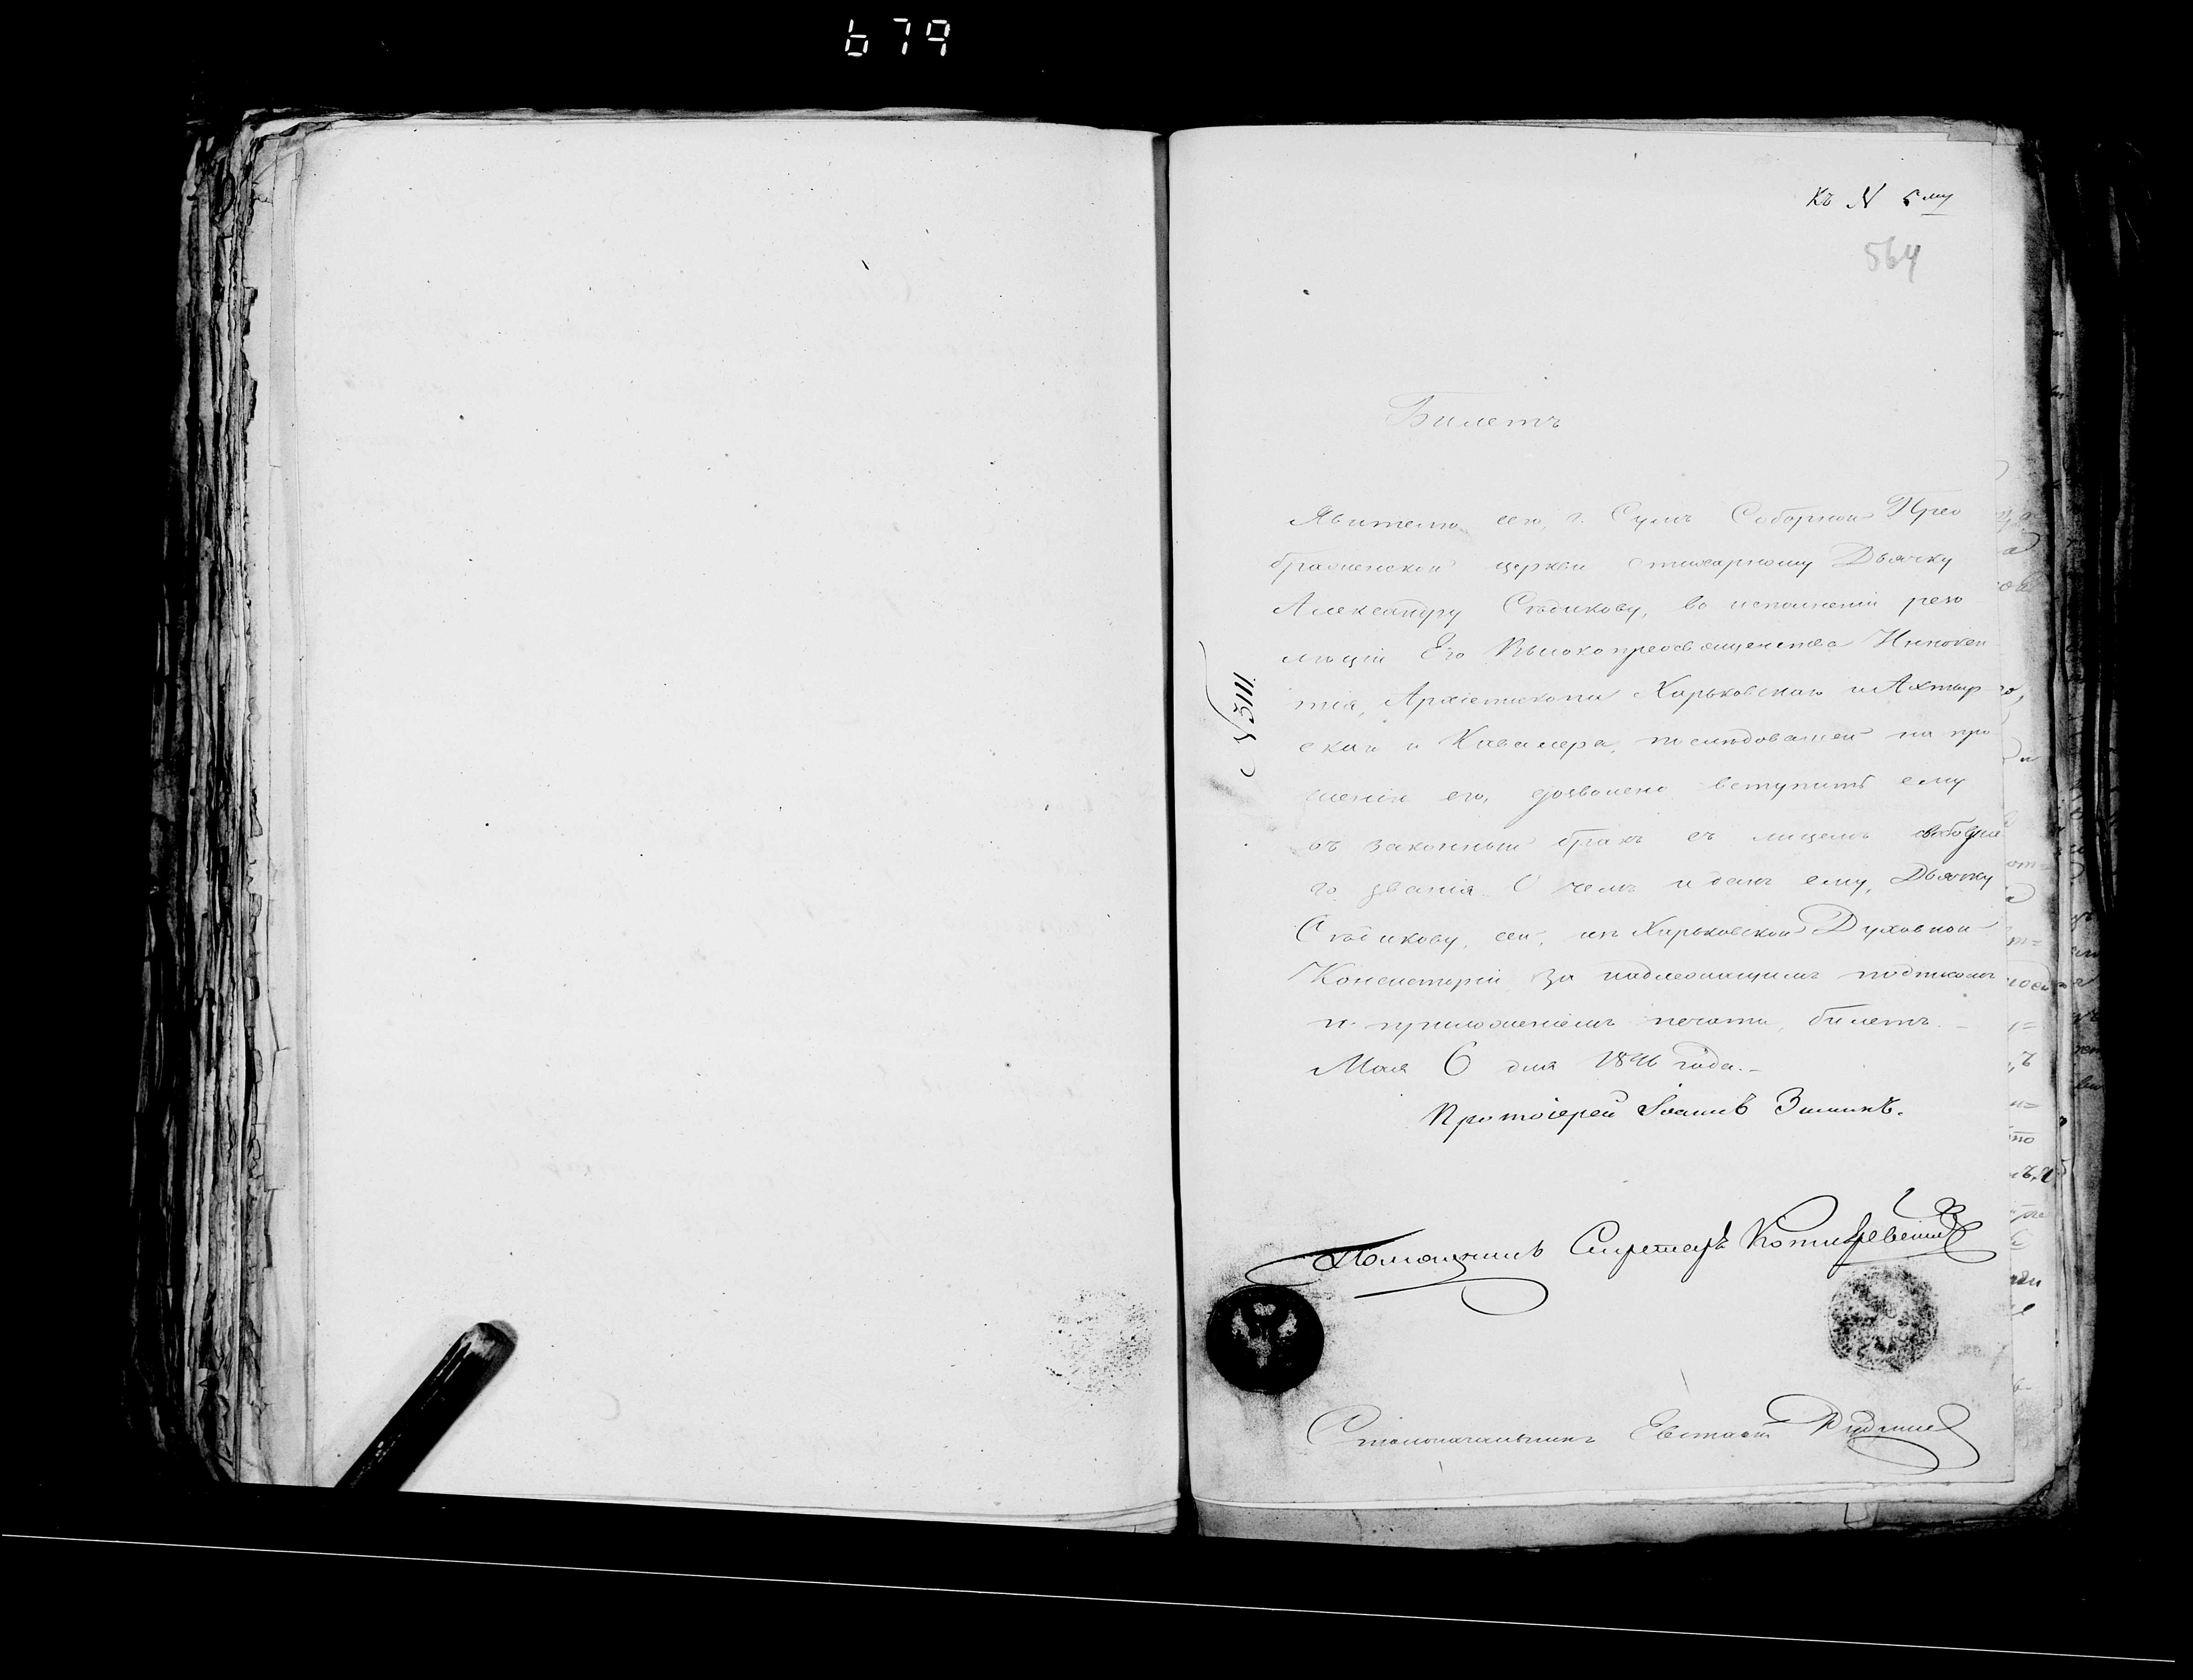 679
Къ N 5му
564
Билетъ
Явителю сего, г. Сумъ Соборной Прео
браженской церкви стихарному Дьячку
Александру Сѣдикову, во исполненіи резо
люціи Его Высокопреосвященства Инокен
тія, Архіепископа Харьковскаго и Ахтыр
скаго и Кавалера, послѣдовавшей на про
шеніи его, дозволено вступить ему
въ законный бракъ съ лицемъ свободна
го званія. О чемъ и данъ ему, Дьячку
Сѣдикову, сей, изъ Харьковской Духовной
Консисторіи за надлежащимъ подписомъ
и приложеніемъ печати, билетъ.
Мая 6 дня 1846 года.
N 3111.
Протоіерей Іоаннъ Зиминъ.
Помощникъ Секретаря
Столоначальникъ Евстафій